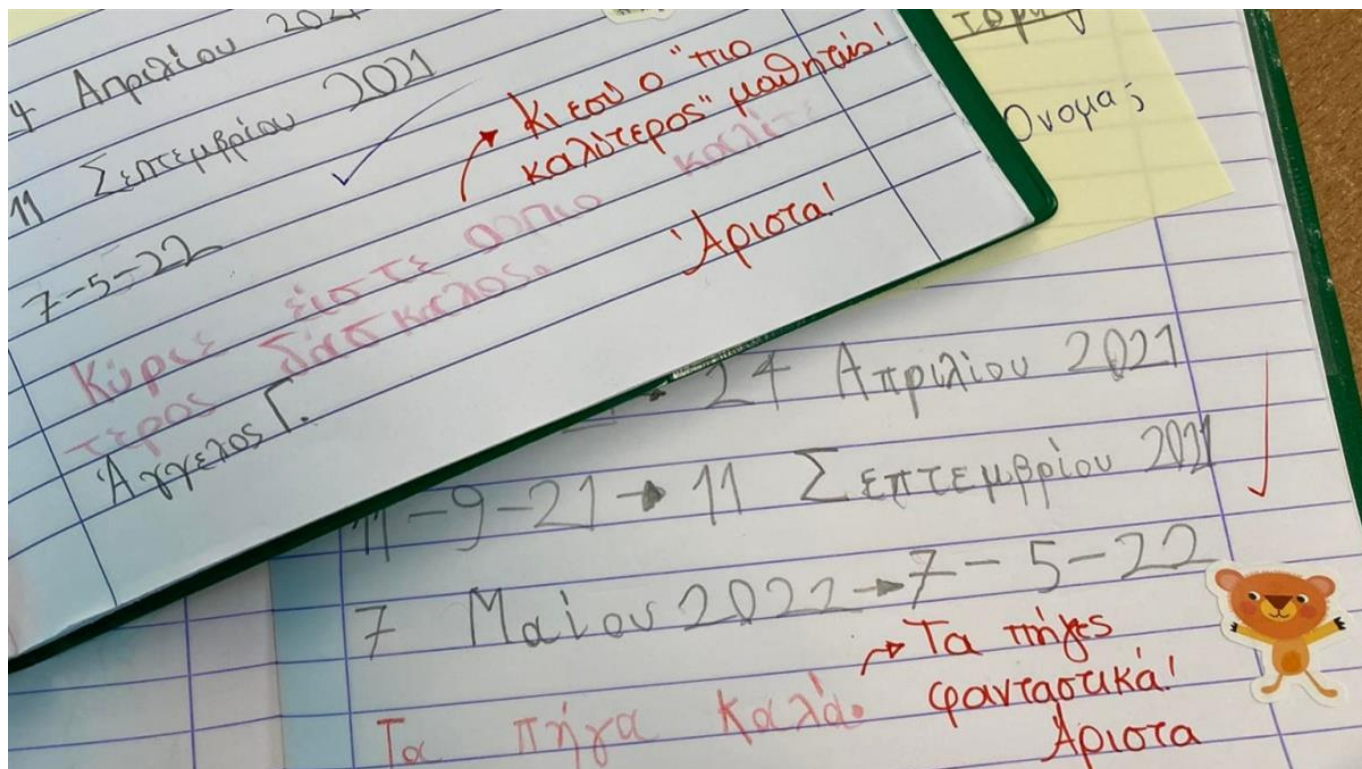 4 Απριλίου 2021
11 Σεπτεμβρίου 2021
7-5-22
Κι εσύ ο "πιο
καλύτερος" μαθητής!
Κύριε είστε οοπιο καλίτε
τερος δάσκαλος.
Άριστα!
Άγγελος Γ.
Όνομα;
24 Απριλίου 2021
11-9-21→11 Σεπτεμβρίου 2021
7 Μαΐου 2022→7-5-22
Τα πήγα καλά.
Τα πήγες
φανταστικά!
Άριστα